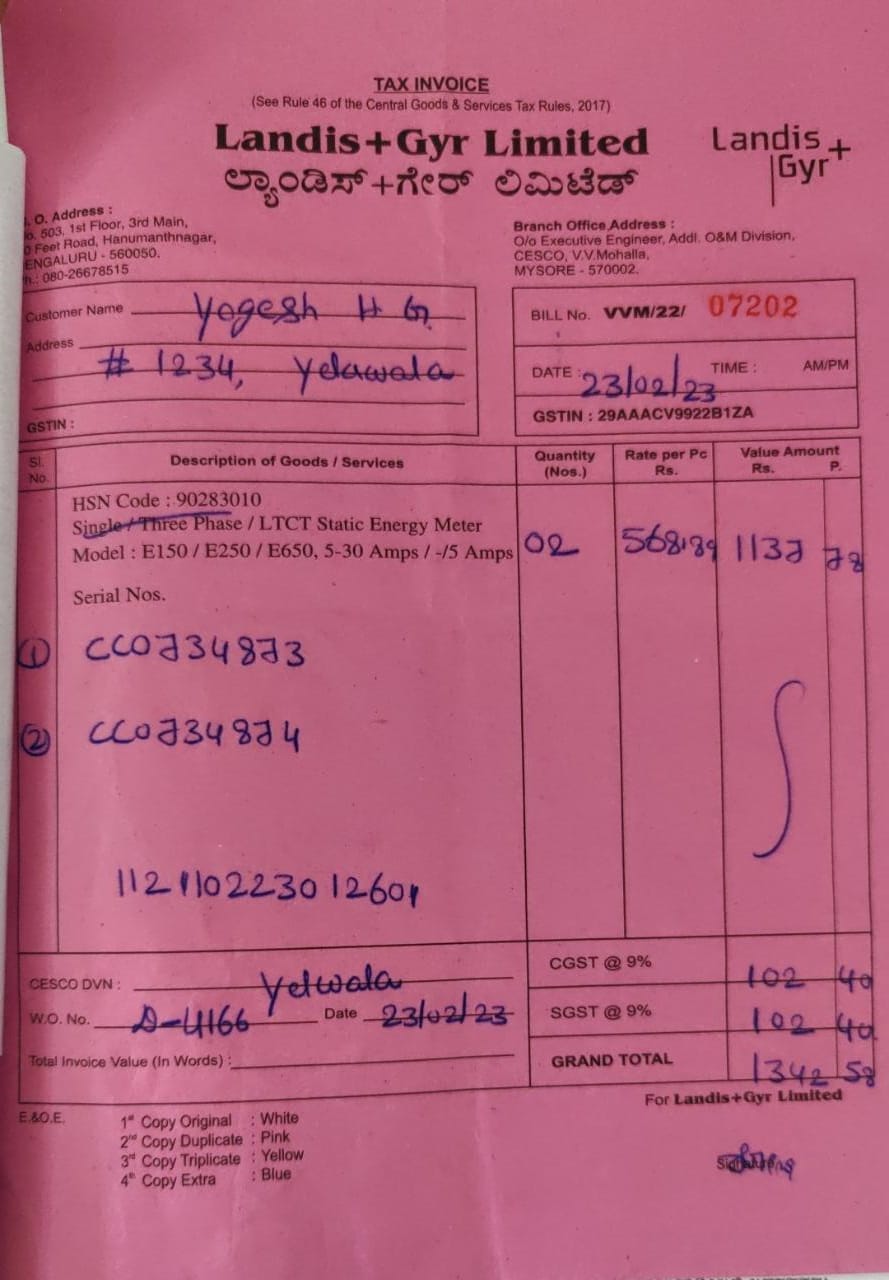 TAX INVOICE
(See Rule 46 of the Central Goods & Services Tax Rules, 2017)
Landis+Gyr Limited
Landis+Gyr
ಲ್ಯಾಂಡಿಸ್+ಗೇರ್ ಲಿಮಿಟೆಡ್
. O. Address :
o. 503, 1st Floor, 3rd Main,
0 Feet Road, Hanumanthnagar,
ENGALURU - 560050.
h.: 080-26678515
Branch Office Address :
O/o Executive Engineer, Addl. O&M Division,
CESCO, V.V.Mohalla,
MYSORE - 570002.
Customer Name Yogesh H G
Address
# 1234, Yelawala
GSTIN :
BILL No. VVM/22/ 07202
DATE : 23/02/23 TIME : AM/PM
GSTIN : 29AAACV9922B1ZA
Sl. No. Description of Goods / Services Quantity (Nos.) Rate per Pc Rs. Value Amount Rs. P.
HSN Code : 90283010
Single / Three Phase / LTCT Static Energy Meter
Model : E150 / E250 / E650, 5-30 Amps / -/5 Amps 02 568.89 1137 78
Serial Nos.
1 CC0734873
2 CC0734874
112110223012601
CESCO DVN : Yelwala
W.O. No. D-4166 Date 23/02/23
Total Invoice Value (In Words) :
CGST @ 9% 102 40
SGST @ 9% 102 40
GRAND TOTAL 1342 58
For Landis+Gyr Limited
E.&O.E.
1st Copy Original : White
2nd Copy Duplicate : Pink
3rd Copy Triplicate : Yellow
4th Copy Extra : Blue